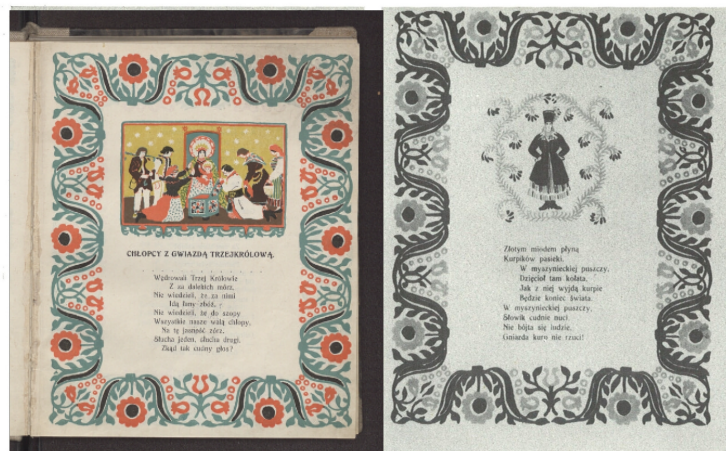 CHŁOPCY Z GWIAZDĄ TRZEJKRÓLOWĄ.
Wędrowali Trzej Królowie
Z za dalekich mórz,
Nie wiedzieli, że za nimi
Idą łany zbóż,
Nie wiedzieli, że do szopy
Wszystkie nasze walą chłopy,
Na tę jasność zórz.
Słucha jeden, słucha drugi,
Zkąd tak cudny głos?
Złotym miodem płyną
Kurpików pasieki.
W myszynieckiej puszczy,
Dzięcioł tam kołata,
Jak z niej wyjdą kurpie
Będzie koniec świata.
W myszynieckiej puszczy,
Słowik cudnie nuci.
Nie bójta się ludzie,
Gniazda kurp nie rzuci!